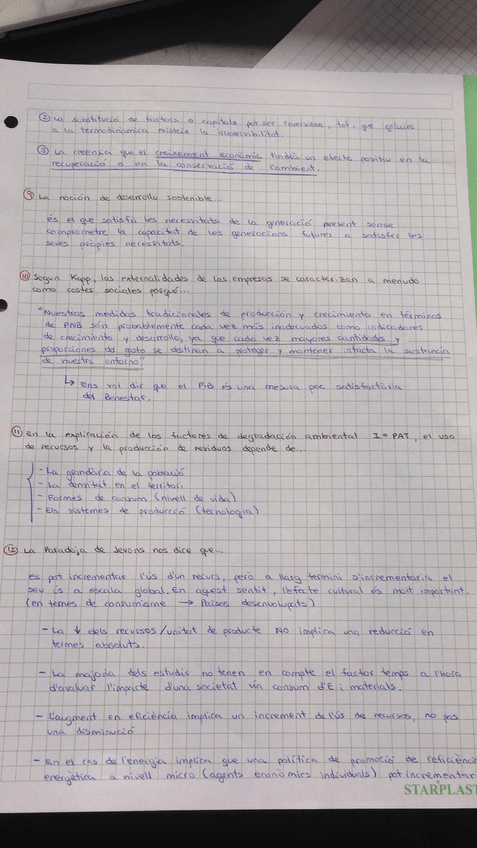 ② La substitució de factors o capitals pot ser reversible, tot i que gràcies
a la termodinàmica existeix la irreversibilitat.
③ La creença que el creixement econòmic tindria un efecte positiu en la
recuperació o en la conservació de l'ambient.
⑨ La noción de desarrollo sostenible...
és el que satisfà les necessitats de la generació present sense
comprometre la capacitat de les generacions futures a satisfer les
seves pròpies necessitats.
⑩ Segun Kapp, las externalidades de las empresas se caracterizan a menudo
como costes sociales porque...
"Nuestras medidas tradicionales de producción y crecimiento en términos
de PNB són probablemente cada vez más inadecuados como indicadores
de crecimiento y desarrollo, ya que cada vez mayores cantidades y
proporciones de gasto se destinan a proteger y mantener intacta la sustancia
de nuestro entorno"
↳ ens vol dir que el PIB és una mesura poc satisfactòria
del Benestar.
⑪ En la explicación de los factores de degradación ambiental I=PAT, el uso
de recursos y la producción de residuos depende de...
- La grandària de la població
- La densitat en el territori
- Formes de consum (nivell de vida)
- Els sistemes de producció (tecnologia)
⑫ La Paradoja de Jevons nos dice que...
es pot incrementar l'ús d'un recurs, però a llarg termini s'incrementaria el
seu ús a escala global. En aquest sentit, l'efecte cultural és molt important.
(en temes de consumisme → Països desenvolupats)
- La ↓ dels recursos/unitat de producte NO implica una reducció en
termes absoluts.
- La majoria dels estudis no tenen en compte el factor temps a l'hora
d'avaluar l'impacte d'una societat via consum d'E i materials.
- L'augment en eficiència implica un increment de l'ús de recursos, no pas
una disminució
- En el cas de l'energia implica que una política de promoció de l'eficiència
energètica a nivell micro (agents econòmics individuals) pot incrementar
STARPLAST